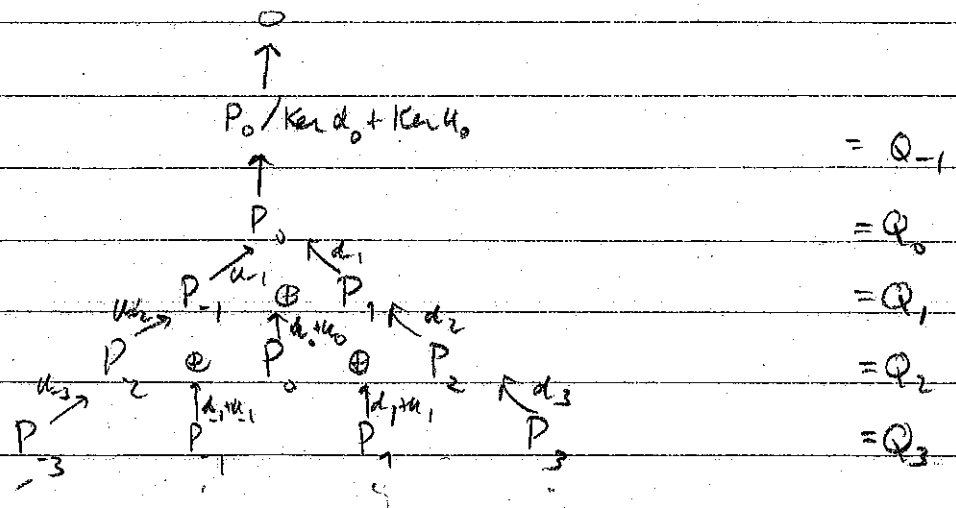 0
P_0 / Ker d_0 + Ker u_0 = Q_{-1}
P_0 = Q_0
u_{-1} d_{-1}
P_{-1} ⊕ P_1 = Q_1
u_{-2} d_0+u_0 d_2
P_2 ⊕ P_0 ⊕ P_2 = Q_2
u_{-3} d_{-1}+u_{-1} d_1+u_1 d_3
P_{-3} P_{-1} P_1 P_3 = Q_3